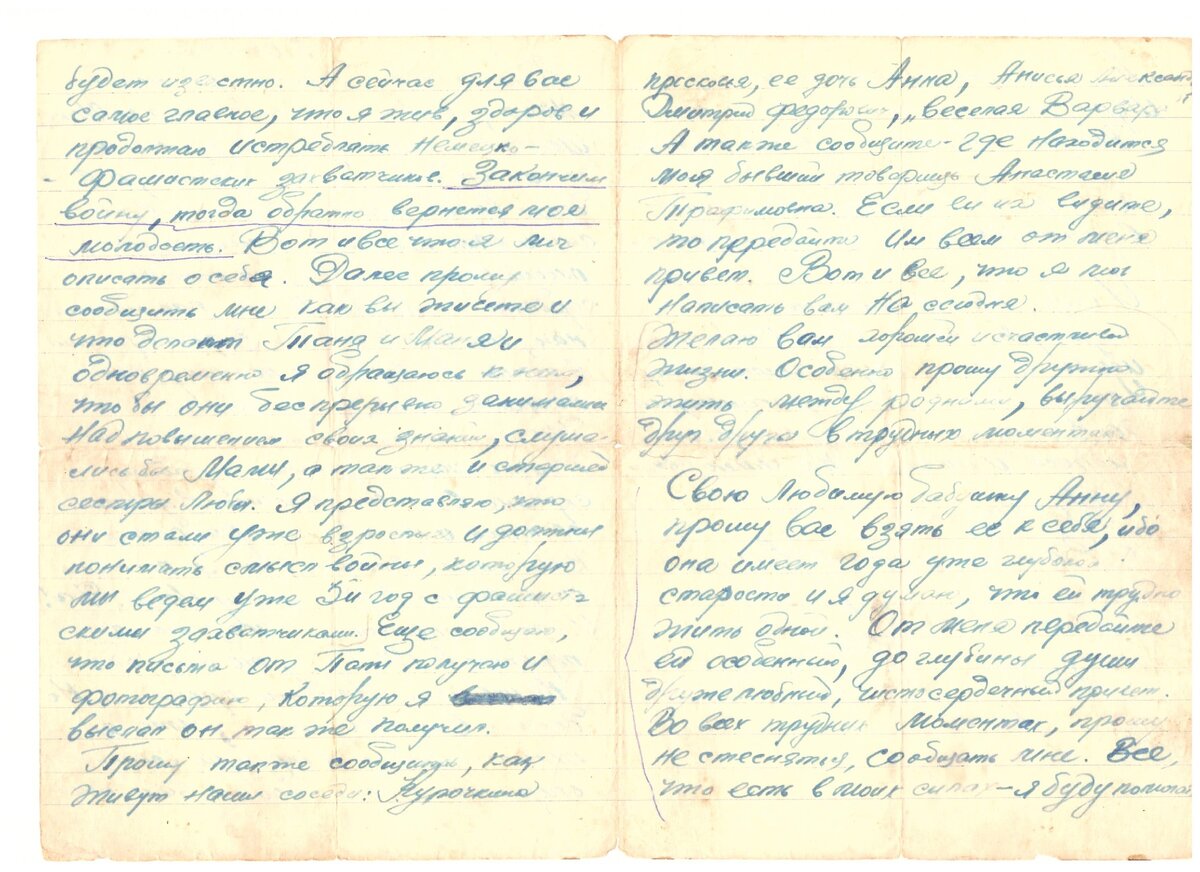 будет известно. А сейчас для вас
самое главное, что я жив, здоров и
продолжаю истреблять Немецко-
фашистских захватчиков. Закончим
войну, тогда обратно вернется моя
молодость. Вот и все что я мог
описать о себе. Далее прошу
сообщить мне как вы живете и
что делают Таня и Маня и
одновременно я обращаюсь к ним,
что бы они беспрерывно занимались
над повышением своих знаний, слуша-
лись бы Мами, а также и старшей
сестры Любы. Я представляю, что
они стали уже взрослые и должны
понимать смысл войны, которую
мы ведем уже 3й год с фашист-
скими захватчиками. Еще сообщаю,
что письма от Пати получаю и
фотографию, которую я
выслал он так же получил.
Прошу также сообщить, как
живут наши соседи: Курочкина
прасковья, ее дочь Анна, Анисья Александ
Дмитрий Федорович, „веселая Варвара
А также сообщите- где находится
мой бывший товарищ Анастасия
Трафимовна. Если вы их видите,
то передайте им всем от меня
привет. Вот и все, что я мог
написать вам на сегодня.
Желаю вам хорошей и счастливой
жизни. Особенно прошу дружно
жить между родными, выручайте
друг друга в трудных моментах.
Свою любимую бабушку Анну,
прошу вас взять ее к себе, ибо
она имеет года уже глубокой
старости и я думаю, что ей трудно
жить одной. От меня передайте
ей особенный, до глубины души
дружелюбный, чистосердечный привет.
Во всех трудных моментах, прошу
не стесняться, сообщать мне. Все,
что есть в моих силах - я буду помогать